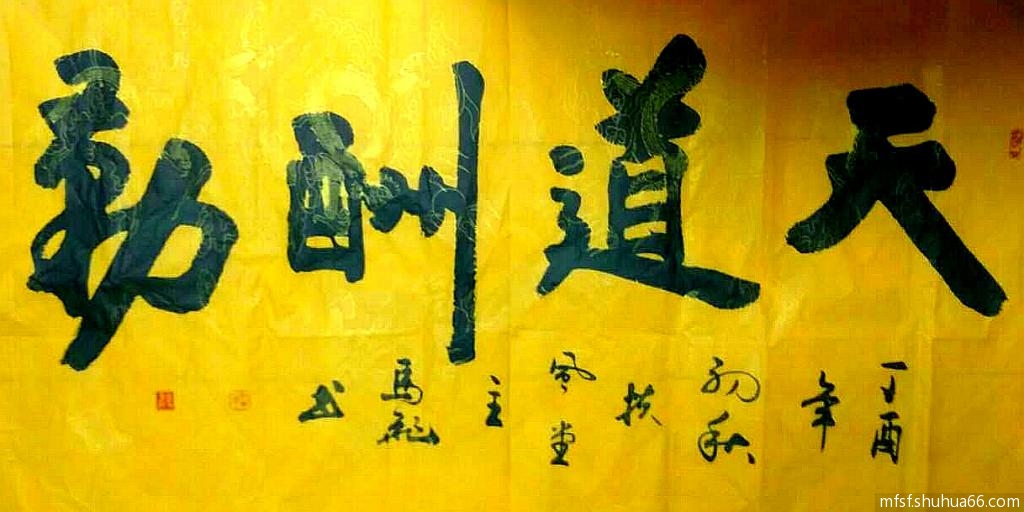 天道酬勤
丁酉年初秋扶風堂主馬龍书
mfsf.shuhua66.com